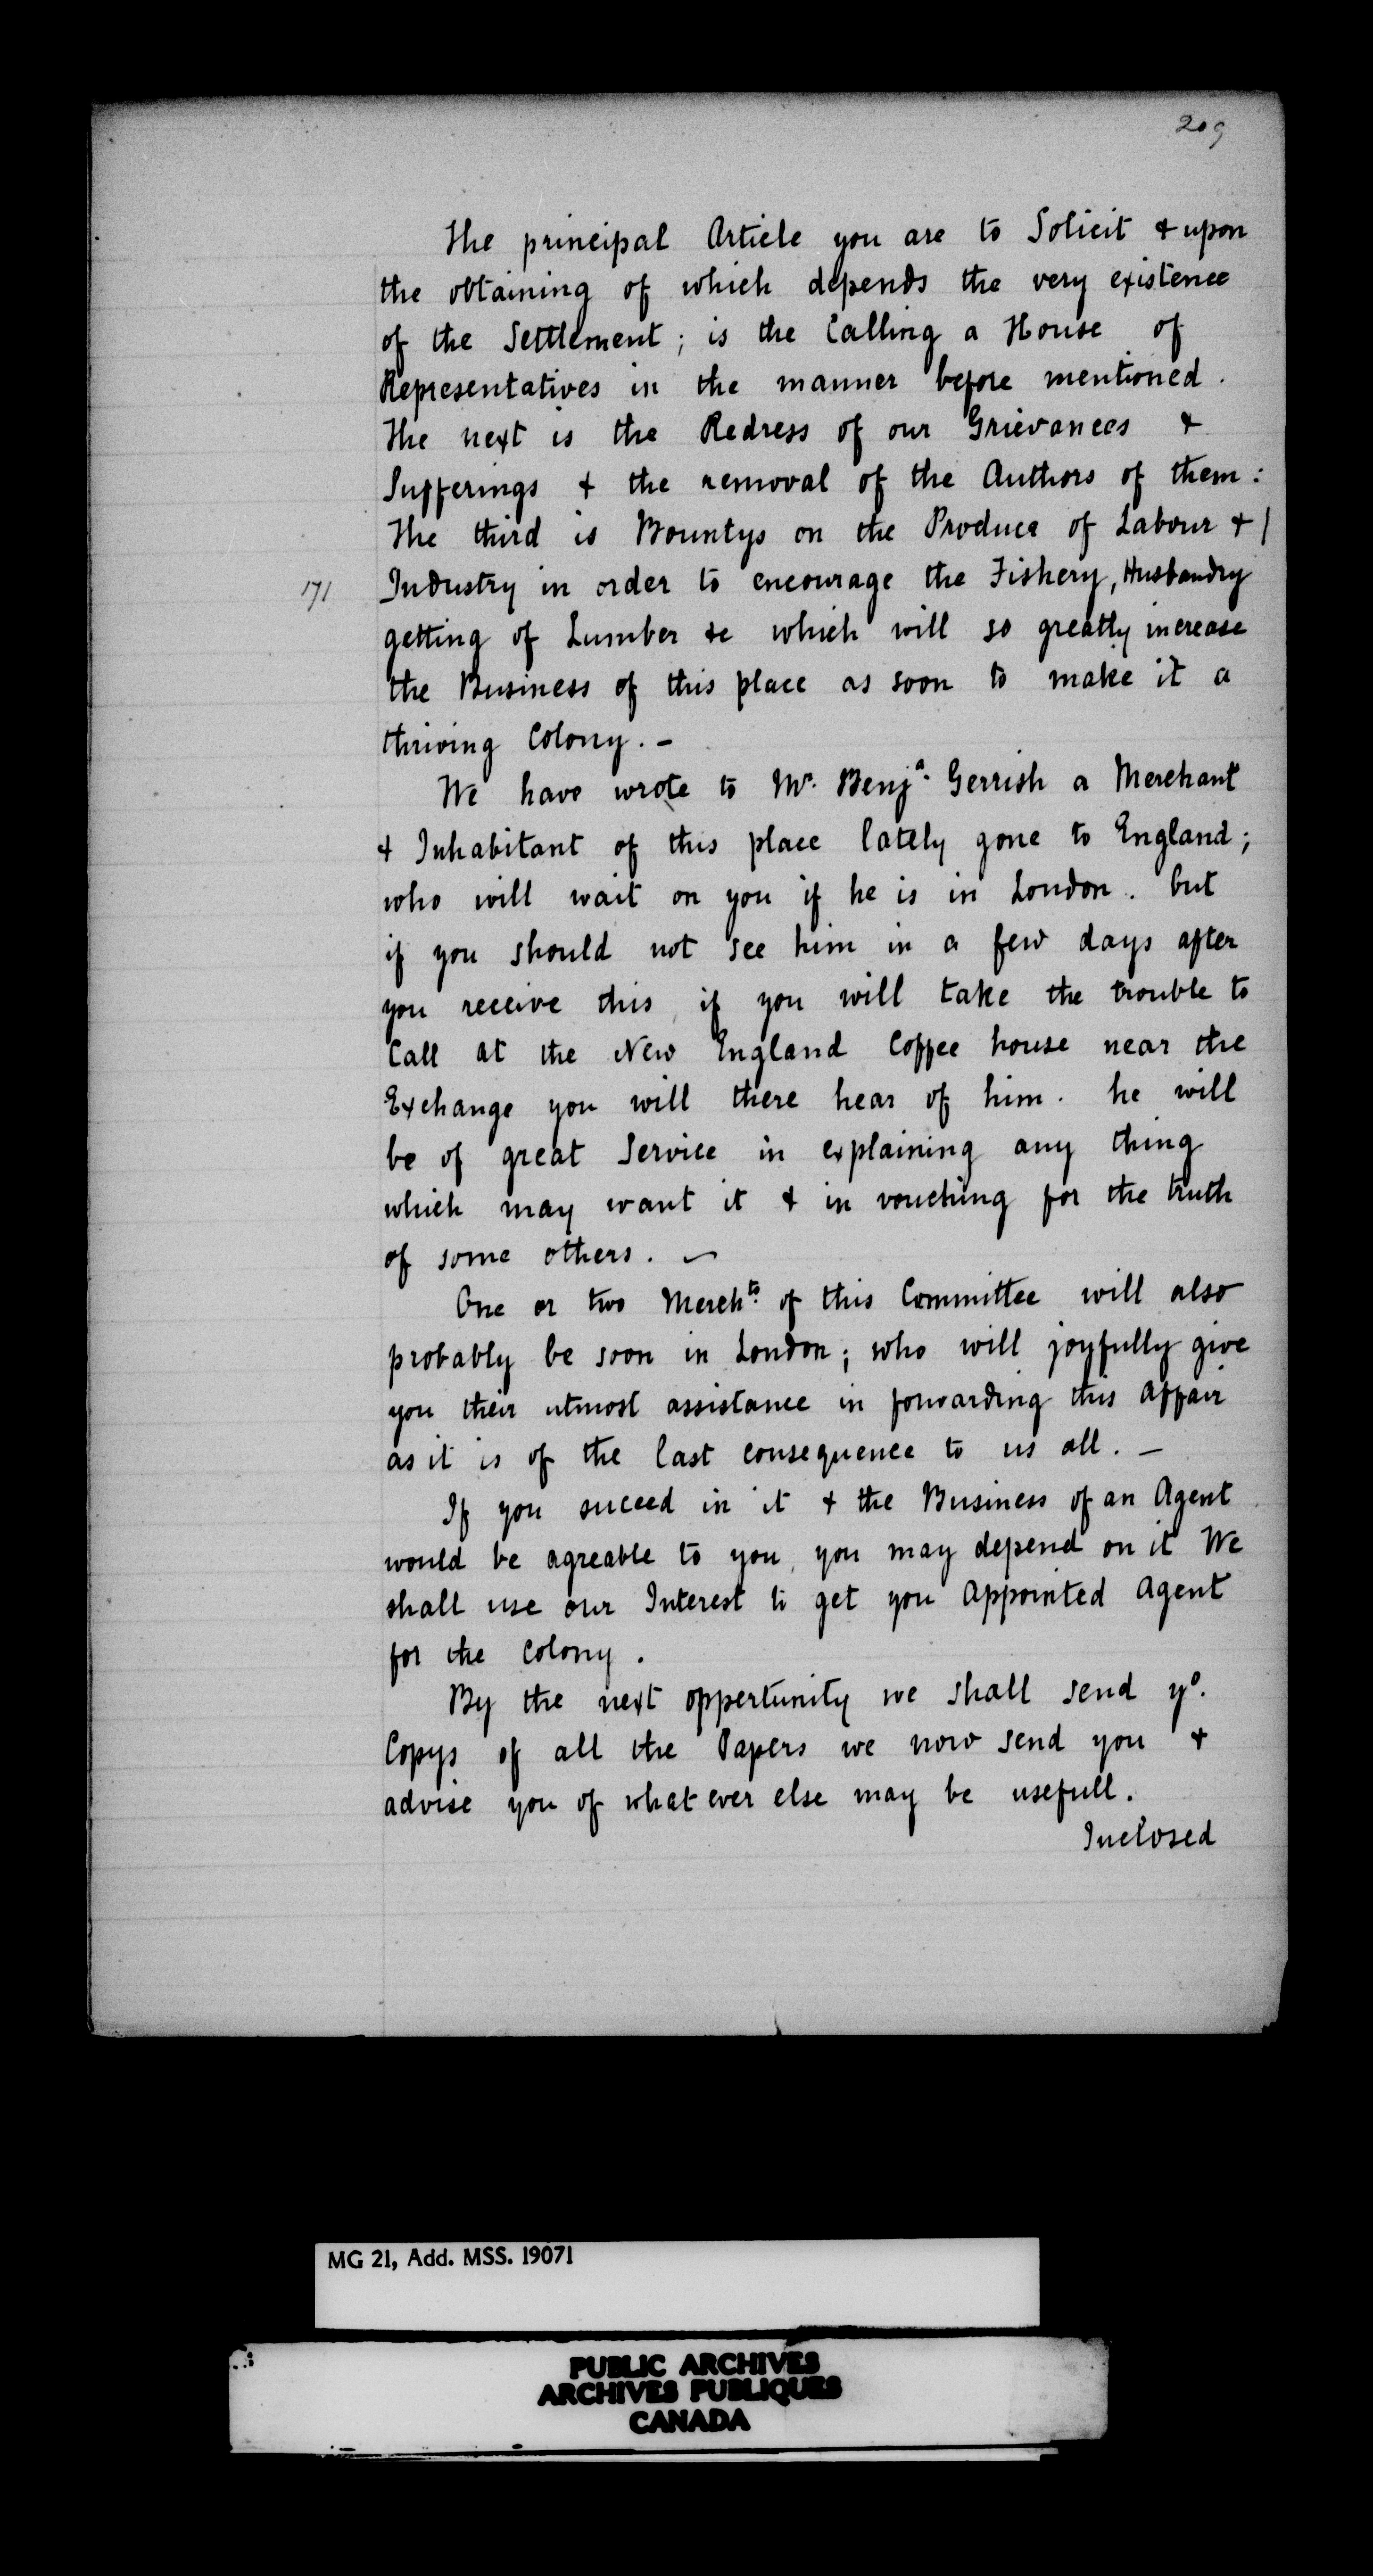 209
The principal Article you are to Solicit & upon
the obtaining of which depends the very existence
of the Settlement; is the Calling a House of
Representatives in the manner before mentioned.
The next is the Redress of our Grievances &
Sufferings & the removal of the Authors of them:
The third is Bountys on the Produce of Labour & /
171
Industry in order to encourage the Fishery, Husbandry
getting of Lumber &c which will so greatly increase
the Business of this place as soon to make it a
thriving Colony. –
We have wrote to Mr. Benja. Gerrish a Merchant
& Inhabitant of this place lately gone to England;
who will wait on you if he is in London. but
if you should not see him in a few days after
you receive this, if you will take the trouble to
Call at the New England Coffee house near the
Exchange you will there hear of him. he will
be of great Service in explaining any thing
which may want it & in vouching for the truth
of some others. –
One or two Merchts. of this Committee will also
probably be soon in London; who will joyfully give
you their utmost assistance in forwarding this affair
as it is of the last consequence to us all. –
If you suceed in it & the Business of an Agent
would be agreable to you, you may depend on it We
shall use our Interest to get you appointed Agent
for the Colony.
By the next oppertunity we shall send yo.
Copys of all the Papers we now send you &
advise you of what ever else may be usefull.
Inclosed
MG 21, Add. MSS. 19071
PUBLIC ARCHIVES
ARCHIVES PUBLIQUES
CANADA